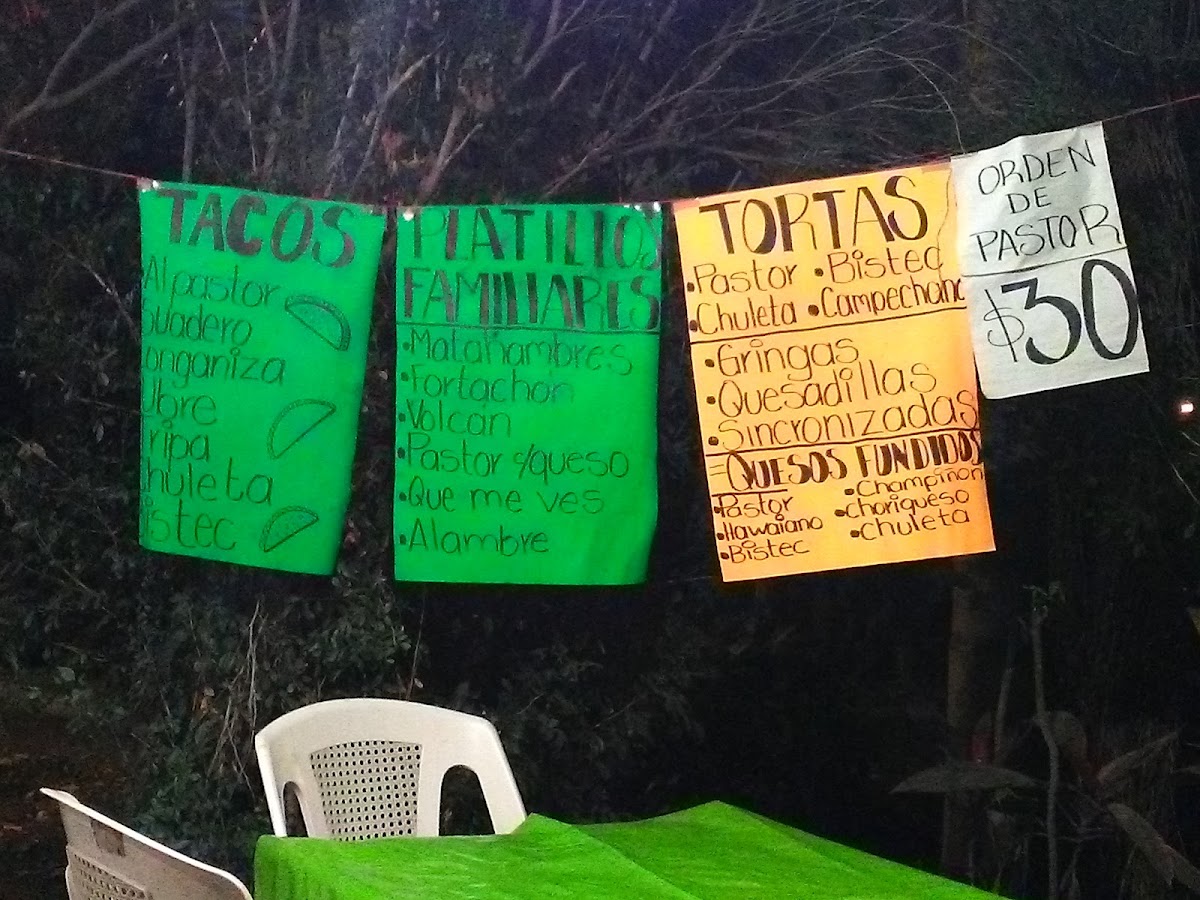 TACOS
Al pastor
Suadero
Longaniza
Ubre
Tripa
Chuleta
Bistec
PLATILLOS
FAMILIARES
•Matahambres
•Fortachon
•Volcán
•Pastor c/queso
•Que me ves
•Alambre
TORTAS
•Pastor •Bistec
•Chuleta •Campechana
•Gringas
•Quesadillas
•Sincronizadas
=QUESOS FUNDIDOS
•Pastor •Champiñon
•Hawaiano •Choriqueso
•Bistec •Chuleta
ORDEN
DE
PASTOR
$30